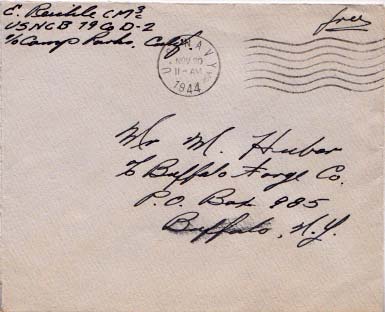 E. Reichle CM3c
USNCB 79 Co D-2
c/o Camp Parks, Calif.
free
U.S. NAVY
NOV 20
11-AM
1944
Mr M. Huber
c/o Buffalo Forge Co.
P.O. Box 985
Buffalo, N.Y.